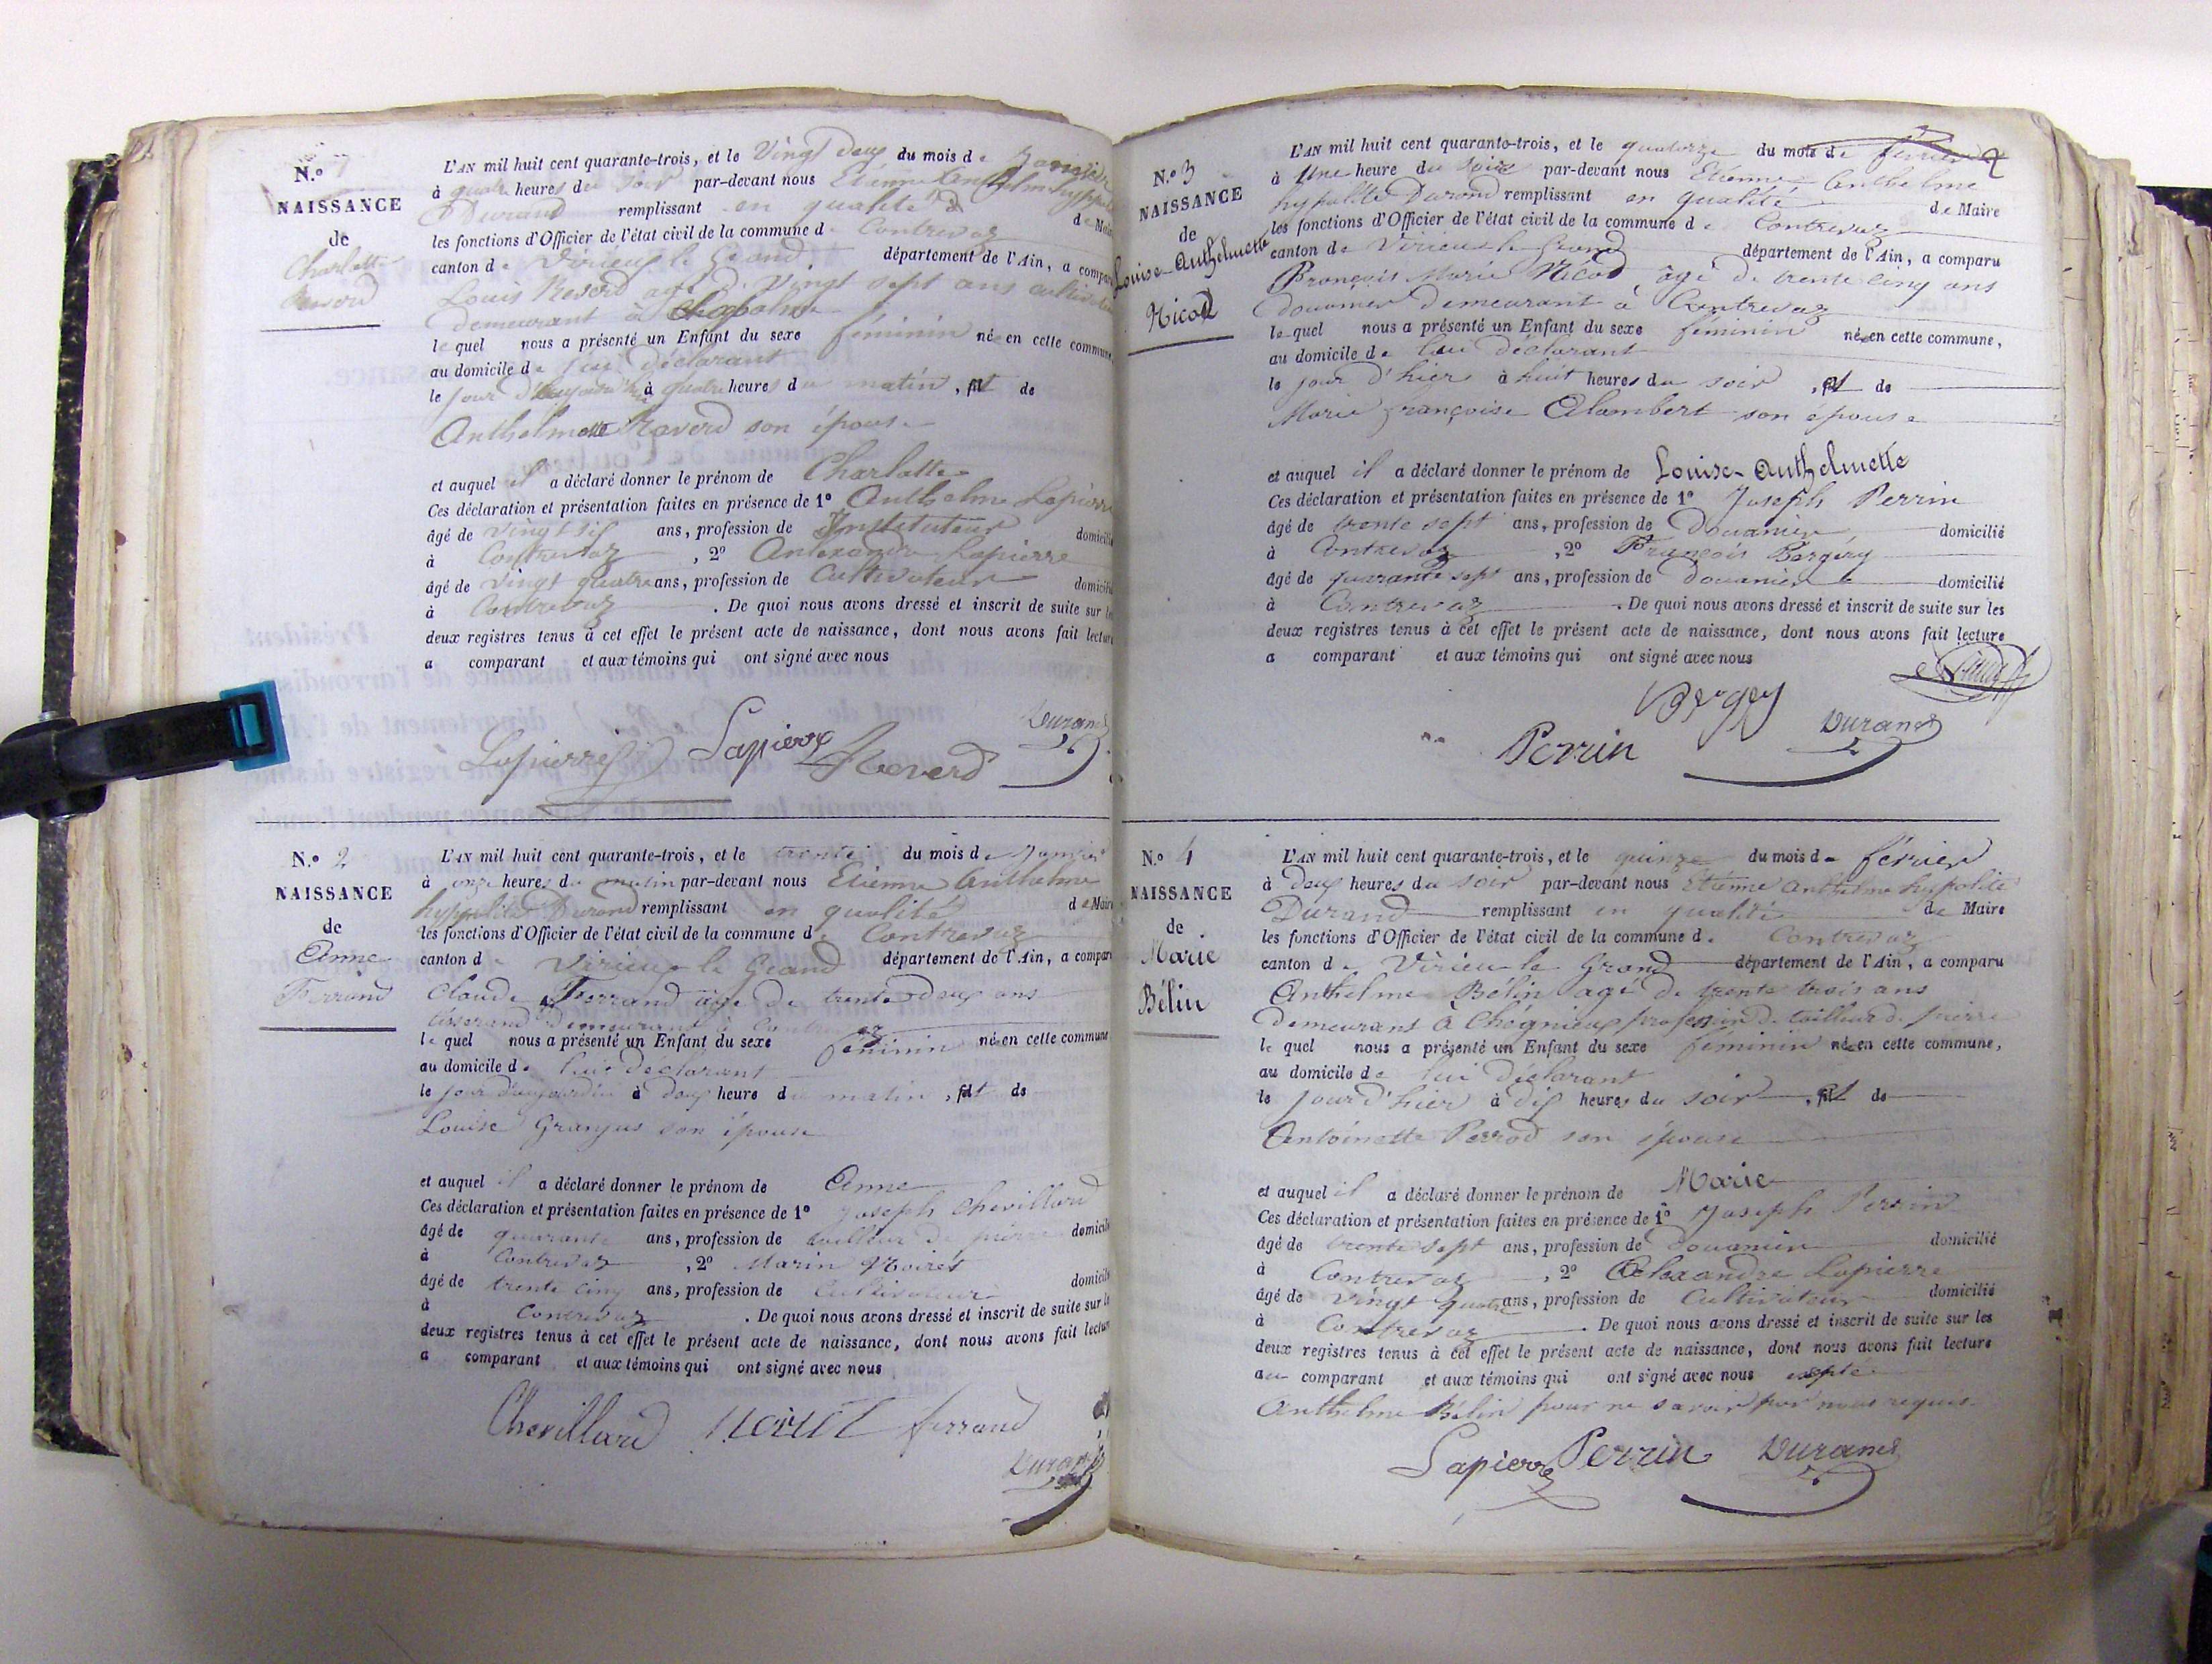 N.º 1
NAISSANCE
de
Charlotte
Reverd
L'AN mil huit cent quarante-trois, et le Vingt deux du mois de Janvier
à quatre heures du soir par-devant nous Etienne Anthelme hyppolite
Durand remplissant en qualité de Maire
les fonctions d'Officier de l'état civil de la commune de Contrevoz
canton de Virieux le Grand département de l'Ain, a comparu
Louis Reverd agé de Vingt sept ans cultivateur
demeurant à
lequel nous a présenté un Enfant du sexe féminin née en cette commune,
au domicile de lui déclarant
le jour d'aujourd'hui à quatre heures du matin, et de
Anthelmette Raverd son épouse
et auquel il a déclaré donner le prénom de Charlotte
Ces déclaration et présentation faites en présence de 1º Anthelme Lapierre
âgé de vingt six ans, profession de Instituteur domicilié
à Contrevoz, 2º Alexandre Lapierre
âgé de vingt quatre ans, profession de Cultivateur domicilié
à Contrevoz. De quoi nous avons dressé et inscrit de suite sur les
deux registres tenus à cet effet le présent acte de naissance, dont nous avons fait lecture
a comparant et aux témoins qui ont signé avec nous
Lapierre Lapierre Reverd Durand
N.º 2
NAISSANCE
de
Anne
Ferrand
L'AN mil huit cent quarante-trois, et le trente du mois de Janvier
à onze heures du matin par-devant nous Etienne Anthelme
hyppolite Durand remplissant en qualité de Maire
les fonctions d'Officier de l'état civil de la commune de Contrevoz
canton de Virieux le Grand département de l'Ain, a comparu
Claude Ferrand âgé de trente deux ans
tisserand demeurant à Contrevoz
lequel nous a présenté un Enfant du sexe féminin née en cette commune
au domicile de lui déclarant
le jour d'aujourd'hui à deux heure du matin, et de
Louise Granjus son épouse
et auquel il a déclaré donner le prénom de Anne
Ces déclaration et présentation faites en présence de 1º Joseph Chevillard
âgé de quarante ans, profession de tailleur de pierre domicilié
à Contrevoz, 2º Marin Moiret
âgé de trente cinq ans, profession de Cultivateur domicilié
à Contrevoz. De quoi nous avons dressé et inscrit de suite sur les
deux registres tenus à cet effet le présent acte de naissance, dont nous avons fait lecture
a comparant et aux témoins qui ont signé avec nous
Chevillard ferrand
Durand
2
N.º 3
NAISSANCE
de
Louise Anthelmette
Nicod
L'AN mil huit cent quarante-trois, et le quatorze du mois de février
à Une heure du soir par-devant nous Etienne Anthelme
hypolite Durand remplissant en qualité de Maire
les fonctions d'Officier de l'état civil de la commune de Contrevoz
canton de Virieux le Grand département de l'Ain, a comparu
François Marie Nicod, âgé de trente cinq ans
douanier demeurant à Contrevoz
lequel nous a présenté un Enfant du sexe féminin née en cette commune,
au domicile de lui déclarant
le jour d'hier à huit heures du soir, et de
Marie françoise Alombert son épouse
et auquel il a déclaré donner le prénom de Louise-Anthelmette
Ces déclaration et présentation faites en présence de 1º Joseph Perrin
âgé de trente sept ans, profession de Douanier domicilié
à Contrevoz, 2º François Bergéry
âgé de quarante sept ans, profession de douanier domicilié
à Contrevoz. De quoi nous avons dressé et inscrit de suite sur les
deux registres tenus à cet effet le présent acte de naissance, dont nous avons fait lecture
a comparant et aux témoins qui ont signé avec nous
Perrin Durand
N.º 4
NAISSANCE
de
Marie
Bélin
L'AN mil huit cent quarante-trois, et le quinze du mois de février
à Deux heures du soir par-devant nous Etienne Anthelme hypolite
Durand remplissant en qualité de Maire
les fonctions d'Officier de l'état civil de la commune de Contrevoz
canton de Virieu le Grand département de l'Ain, a comparu
Anthelme Bélin agé de trente trois ans
demeurant à Chognieux profession de tailleur de pierre
lequel nous a présenté un Enfant du sexe féminin née en cette commune,
au domicile de lui déclarant
le jour d'hier à dix heures du soir, et de
Antoinette Perrod son épouse
et auquel il a déclaré donner le prénom de Marie
Ces déclaration et présentation faites en présence de 1º Joseph Perrin
âgé de trente sept ans, profession de Douanier domicilié
à Contrevoz, 2º Alexandre Lapierre
âgé de vingt quatre ans, profession de Cultivateur domicilié
à Contrevoz. De quoi nous avons dressé et inscrit de suite sur les
deux registres tenus à cet effet le présent acte de naissance, dont nous avons fait lecture
au comparant et aux témoins qui ont signé avec nous
Anthelme Bélin pour ne savoir par nous requis
Lapierre Perrin Durand